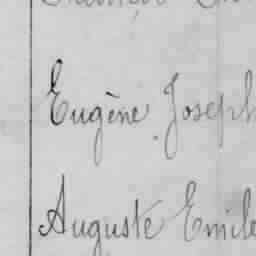 Eugène Joseph
Auguste Emile